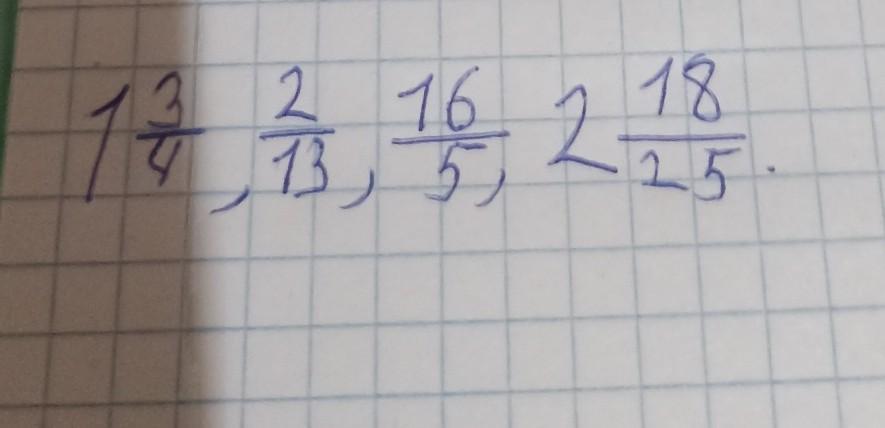 1 3/4, 2/13, 16/5, 2 18/25.